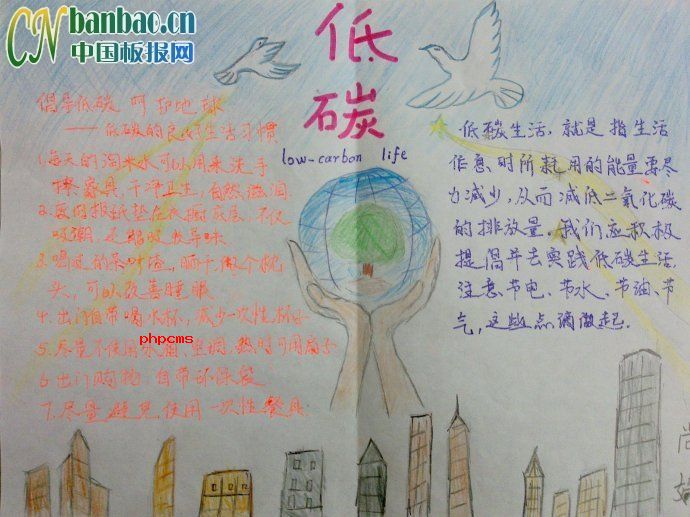 banbao.cn
CN
中国板报网
低
碳
low-carbon life
倡导低碳 呵护地球
——低碳的良好生活习惯
1.每天的淘米水可以用来洗手
擦家具,干净卫生,自然滋润.
2.废旧报纸垫在衣橱底层,不仅
吸潮,还能吸收异味
3.喝过的茶叶渣,晒干,做个枕
头,可以改善睡眠
4.出门自带喝水杯,减少一次性杯子
5.尽量不使用冰箱、空调,热时可用扇子
phpcms
6.出门购物,自带环保袋
7.尽量避免使用一次性餐具.
低碳生活,就是指生活
作息时所耗用的能量要尽
力减少,从而减低二氧化碳
的排放量.我们应积极
提倡并去实践低碳生活.
注意节电、节水、节油、节
气,这些点滴做起.